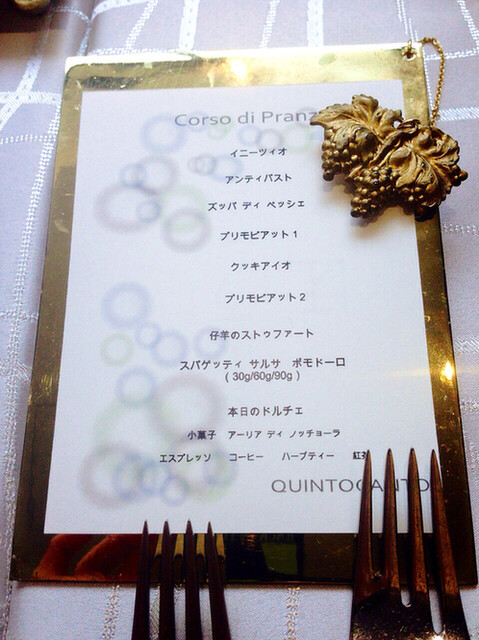 Corso di Pranz
イニーツィオ
アンティパスト
ズッパ ディ ペッシェ
プリモピアット 1
クッキアイオ
プリモピアット 2
仔羊のストゥファート
スパゲッティ サルサ ポモドーロ
( 30g/60g/90g )
本日のドルチェ
小菓子 アーリア ディ ノッチョーラ
エスプレッソ コーヒー ハーブティー 紅茶
QUINTOCANTO